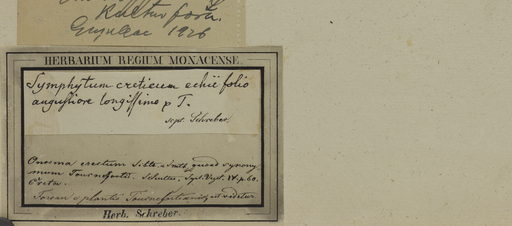 Kultur forn.
1926
HERBARIUM REGIUM MONACENSE.
Symphytum creticum echii folio
angustiore longissimo p T.
scps. Schreber.
Onosma erectum Sibth. Smith, quoad synony
mum Tournefortii. Schultes, Syst. Veget. IV. p. 60.
Creta.
Forsan e plantis Tournefortianis, ut videtur.
Herb. Schreber.